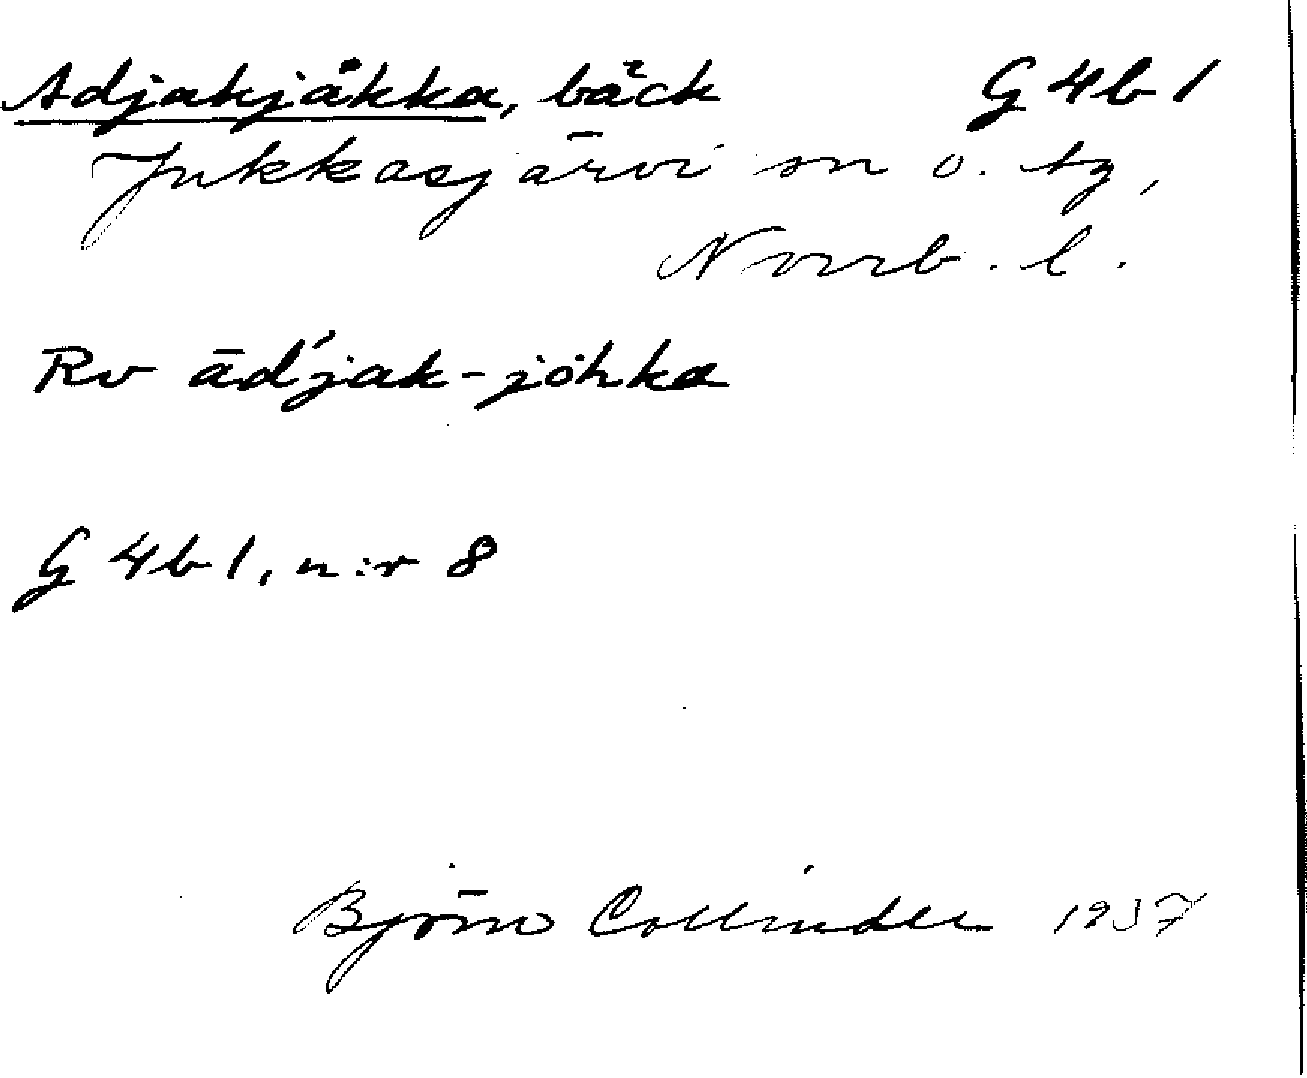 Adjakjåkka, bäck G 4b 1
Jukkasjärvi sn o. tg,
Norrb. l.
Rv ād́jak-jȯhka
G 4b 1, n:r 8
Björn Collinder 1937